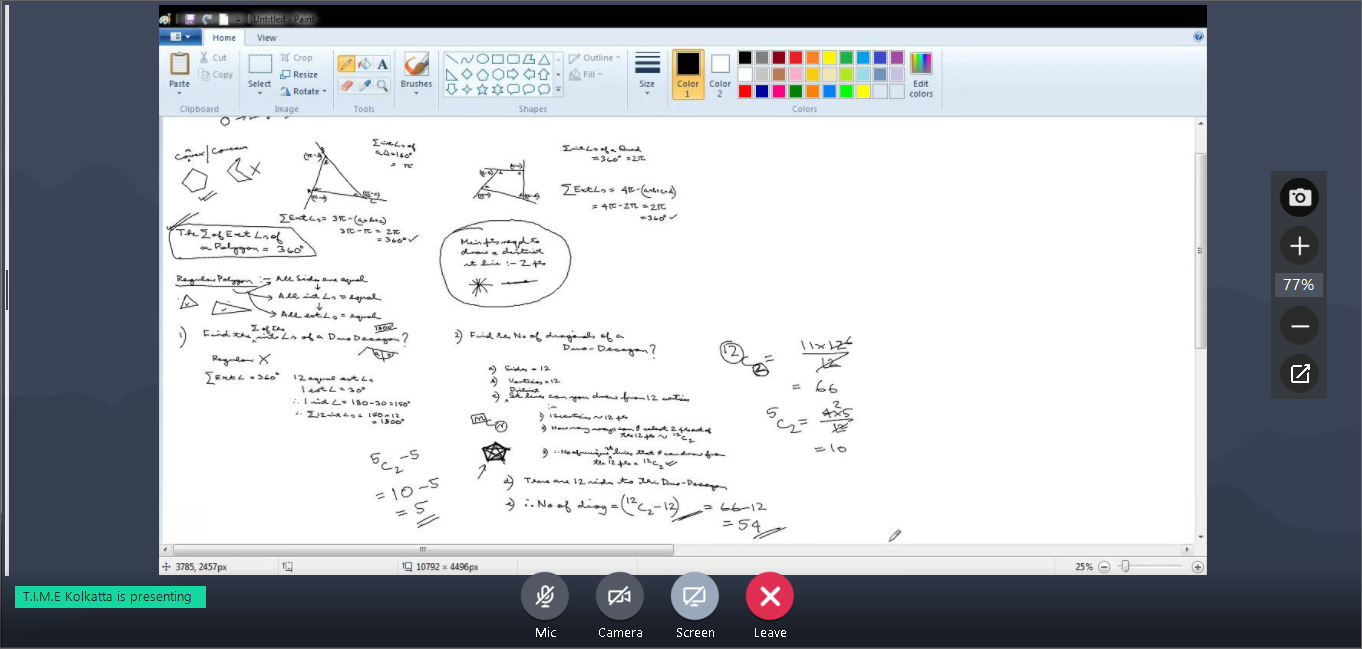 Untitled - Paint
Home View
Paste
Cut
Copy
Clipboard
Select
Crop
Resize
Rotate
Image
A
Tools
Brushes
Outline
Fill
Shapes
Size
Color 1
Color 2
Edit colors
Colors
Convex/Concave
Σint∠s of
a Δ=180°
= π
ΣExt∠s = 3π-(a+b+c)
3π-π = 2π
=360°✓
The Σ of Ext ∠s of
a Polygon = 360°
Σint∠s of a Quad
=360°=2π
ΣExt∠s = 4π-(a+b+c+d)
= 4π-2π = 2π
=360°✓
Min pts reqd to
draw a distinct
st line :- 2 pts
Regular Polygon :- All Sides are equal
All int ∠s = equal
All ext ∠s = equal
1) Find the int ∠s of a Duo Decagon?
1800°
Regular X
ΣExt∠=360°
12 equal ext ∠s
1 ext ∠ = 30°
∴ 1 int ∠ = 180-30=150°
∴ Σ12 int∠s = 150×12
= 1800°
2) Find the No of diagonals of a
Duo-Decagon?
a) Sides = 12
b) Vertices = 12
Distinct
c) St lines can you draw from 12 vertices
1) 12 vertices ~ 12 pts
2) How many ways can I select 2 pts out of
the 12 pts ~ 12C2
3) ∴ No of unique st lines that I can draw from
the 12 pts = 12C2
d) There are 12 sides to the Duo-Decagon
e) ∴ No of diag = (12C2-12) = 66-12
= 54
5C2-5
= 10-5
= 5
12C2 = 11×12
= 66
5C2 = 4×5
= 10
3785, 2457px
10792 × 4496px
25%
77%
T.I.M.E Kolkatta is presenting
Mic
Camera
Screen
Leave